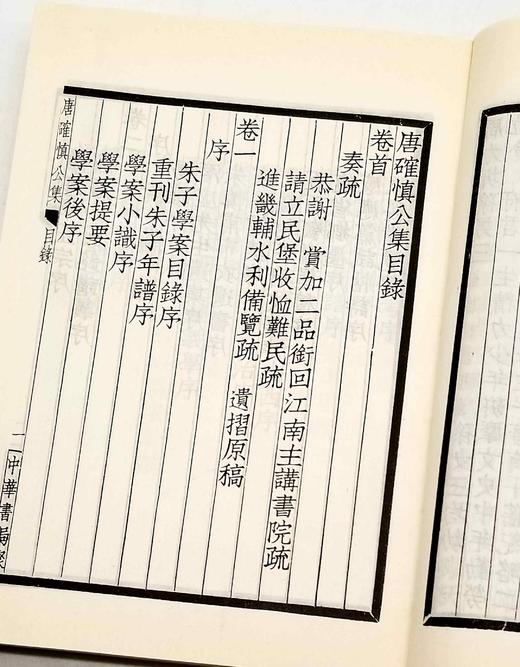 唐確慎公集目錄
卷首
奏疏
恭謝　賞加二品銜回江南主講書院疏
請立民堡收恤難民疏
進畿輔水利備覽疏　遺摺原稿
卷一
序
朱子學案目錄序
重刊朱子年譜序
學案小識序
學案提要
學案後序
唐確慎公集　目錄　一　中華書局聚